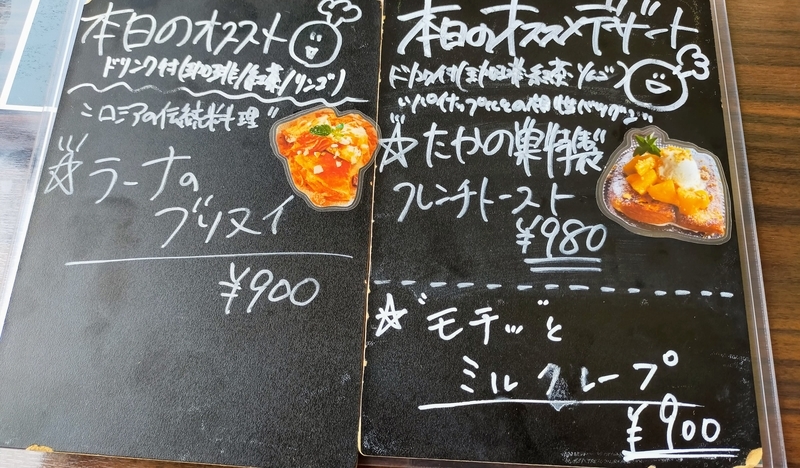 本日のオススメ
ドリンク付(珈琲/紅茶/リンゴ)
ロシアの伝統料理"
☆ラーナの
ブリヌイ
¥900
本日のオススメデザート
ドリンク付(珈琲/紅茶/リンゴ)
"パイナップルとの相性バツグン"
☆たかの巣特製
フレンチトースト
¥980
☆"モチッ"と
ミルクレープ
¥900